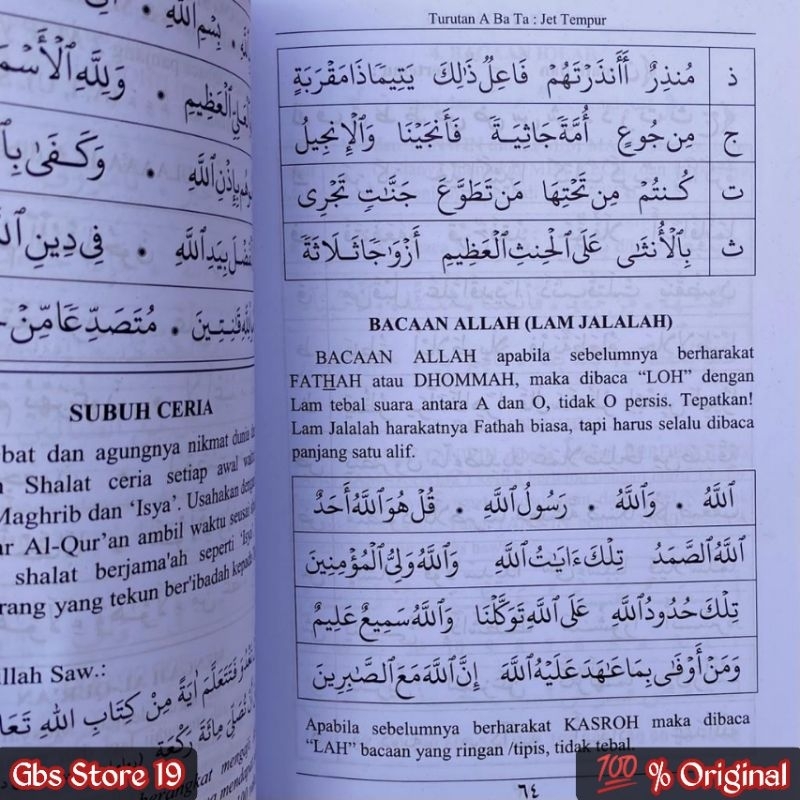 Turutan A Ba Ta : Jet Tempur
ذ مُنذِرٌ ءَأَنذَرْتَهُمْ فَاعِلٌ ذَٰلِكَ يَتِيمًا ذَا مَقْرَبَةٍ
ج مِن جُوعٍ أُمَّةٍ جَاثِيَةً فَأَنجَيْنَا وَالْإِنجِيلُ
ت كُنتُمْ مِن تَحْتِهَا مَن تَطَوَّعَ جَنَّٰتٍ تَجْرِى
ث بِالْأُنثَىٰ عَلَى الْحِنثِ الْعَظِيمِ أَزْوَٰجًا ثَلَاثَةً
BACAAN ALLAH (LAM JALALAH)
BACAAN ALLAH apabila sebelumnya berharakat
FATHAH atau DHOMMAH, maka dibaca “LOH” dengan
Lam tebal suara antara A dan O, tidak O persis. Tepatkan!
Lam Jalalah harakatnya Fathah biasa, tapi harus selalu dibaca
panjang satu alif.
اَللَّهُ • وَاللَّهُ • رَسُولُ اللَّهِ • قُلْ هُوَ اللَّهُ أَحَدٌ
اَللَّهُ الصَّمَدُ تِلْكَ ءَايَٰتُ اللَّهِ وَاللَّهُ وَلِيُّ الْمُؤْمِنِينَ
تِلْكَ حُدُودُ اللَّهِ عَلَى اللَّهِ تَوَكَّلْنَا وَاللَّهُ سَمِيعٌ عَلِيمٌ
وَمَنْ أَوْفَىٰ بِمَا عَٰهَدَ عَلَيْهُ اللَّهَ إِنَّ اللَّهَ مَعَ الصَّابِرِينَ
Apabila sebelumnya berharakat KASROH maka dibaca
“LAH” bacaan yang ringan /tipis, tidak tebal.
٦٤
بِسْمِ اللَّهِ •
الْعَظِيمِ • وَلِلَّهِ الْأَسْمَ
بِإِذْنِ اللَّهِ • وَكَفَىٰ بِا
بِيَدِ اللَّهِ • فِى دِينِ ال
قَٰنِتِينَ • مُتَصَدِّعًا مِّنْ
SUBUH CERIA
bat dan agungnya nikmat dunia
Shalat ceria setiap awal
Maghrib dan ‘Isya’. Usahakan
ar Al-Qur’an ambil waktu seusai
shalat berjama'ah seperti ‘Isya
rang yang tekun ber'ibadah kepada
llah Saw.:
فَتَتَعَلَّمَ آيَةً مِنْ كِتَابِ اللهِ
مِائَةَ رَكْعَةٍ
berangkat
Gbs Store 19
💯 % Original